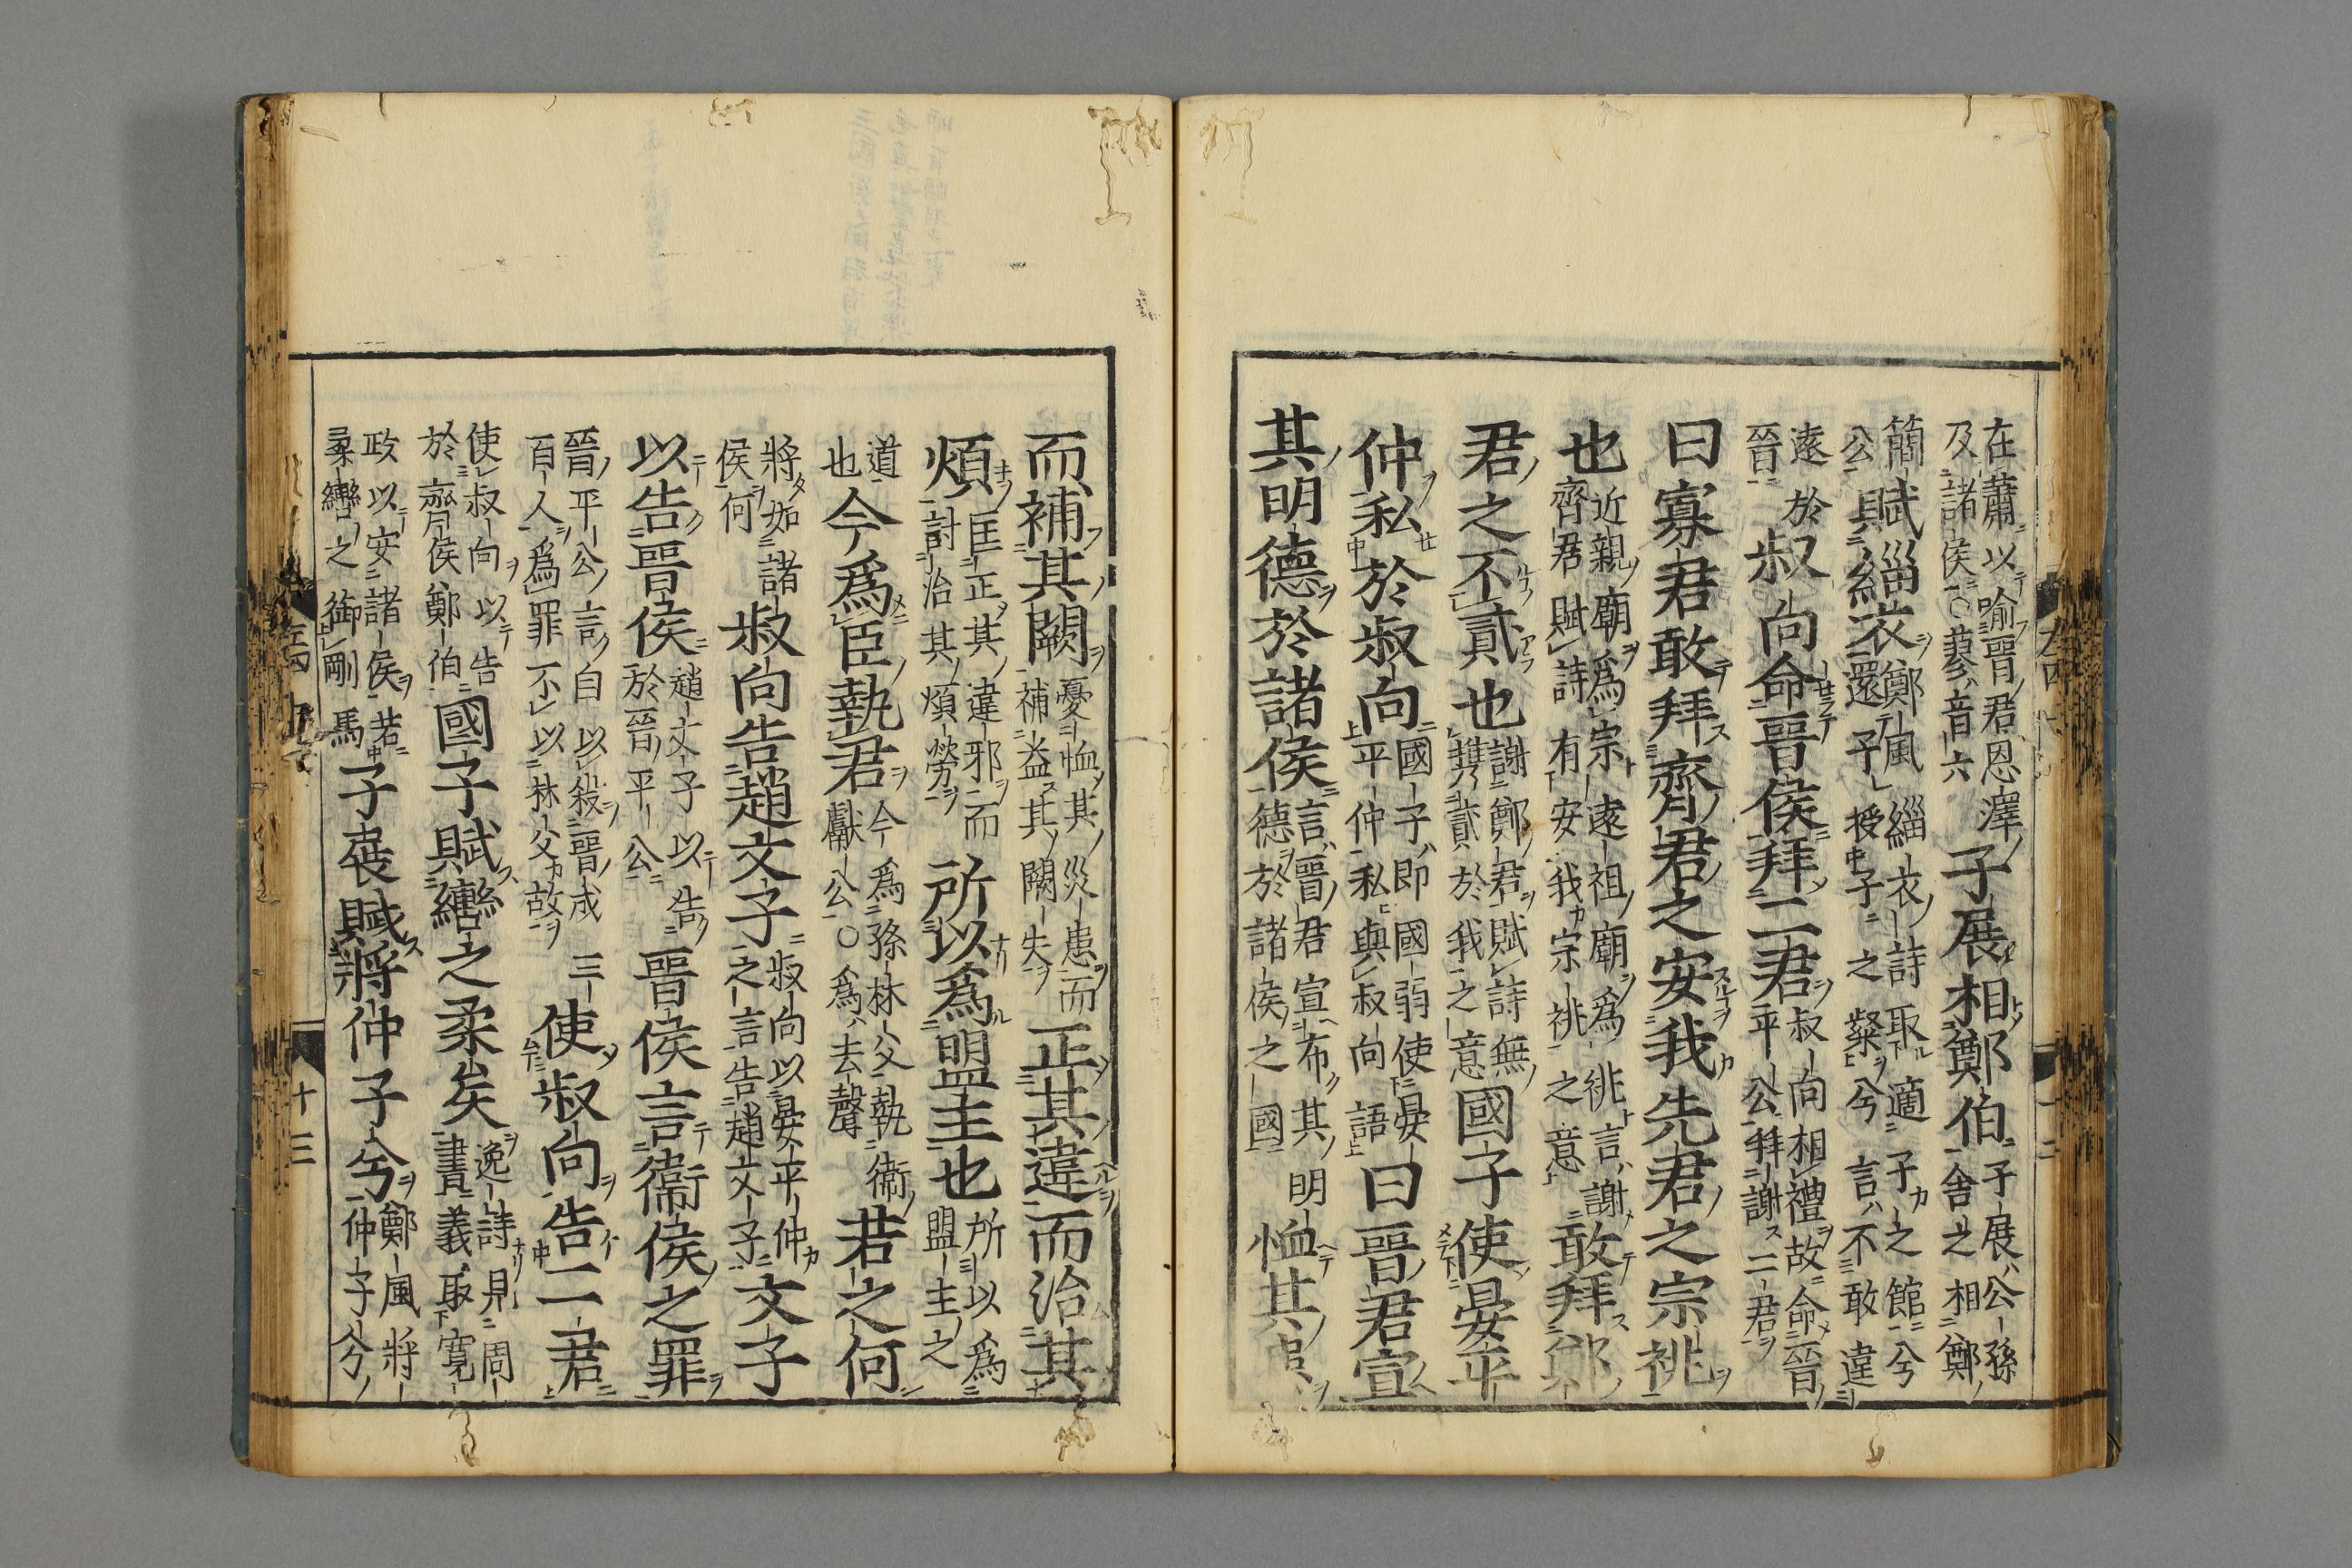 在蕭以喻晉君恩澤
及諸侯○蓼音六
子展相鄭伯
子展公孫
舍之相鄭
簡
公
賦緇衣
鄭風緇衣詩取適子之館兮
還子授子之粲兮言不敢違
遠於
晉
叔向命晉侯拜二君
叔向相禮故命晉
平公拜謝二君
曰寡君敢拜齊君之安我先君之宗祧
也
近親廟爲宗遠祖廟爲祧言謝
齊君賦詩有安我宗祧之意
敢拜鄭
君之不貳也
謝鄭君賦詩無
攜貳於我之意
國子使晏平
仲私於叔向
國子即國弱使晏
平仲私與叔向語
曰晉君宣
其明德於諸侯
言晉君宣布其明
德於諸侯之國
恤其患
而補其闕
憂恤其災患而
補益其闕失
正其違而治其
煩
匡正其違邪而
討治其煩勞
所以爲盟主也
所以爲
盟主之
道
也
今爲臣執君
今爲孫林父執衛
獻公○爲去聲
若之何
將如諸
侯何
叔向告趙文子
叔向以晏平仲
之言告趙文子
文子
以告晉侯
趙文子以告
於晉平公
晉侯言衛侯之罪
晉平公言自以殺晉戍三
百人爲罪不以林父故
使叔向告二君
使叔向以告
於齊侯鄭伯
國子賦轡之柔矣
逸詩見周
書義取寬
政以安諸侯若
柔轡之御剛馬
子展賦將仲子兮
鄭風將
仲子兮
十三